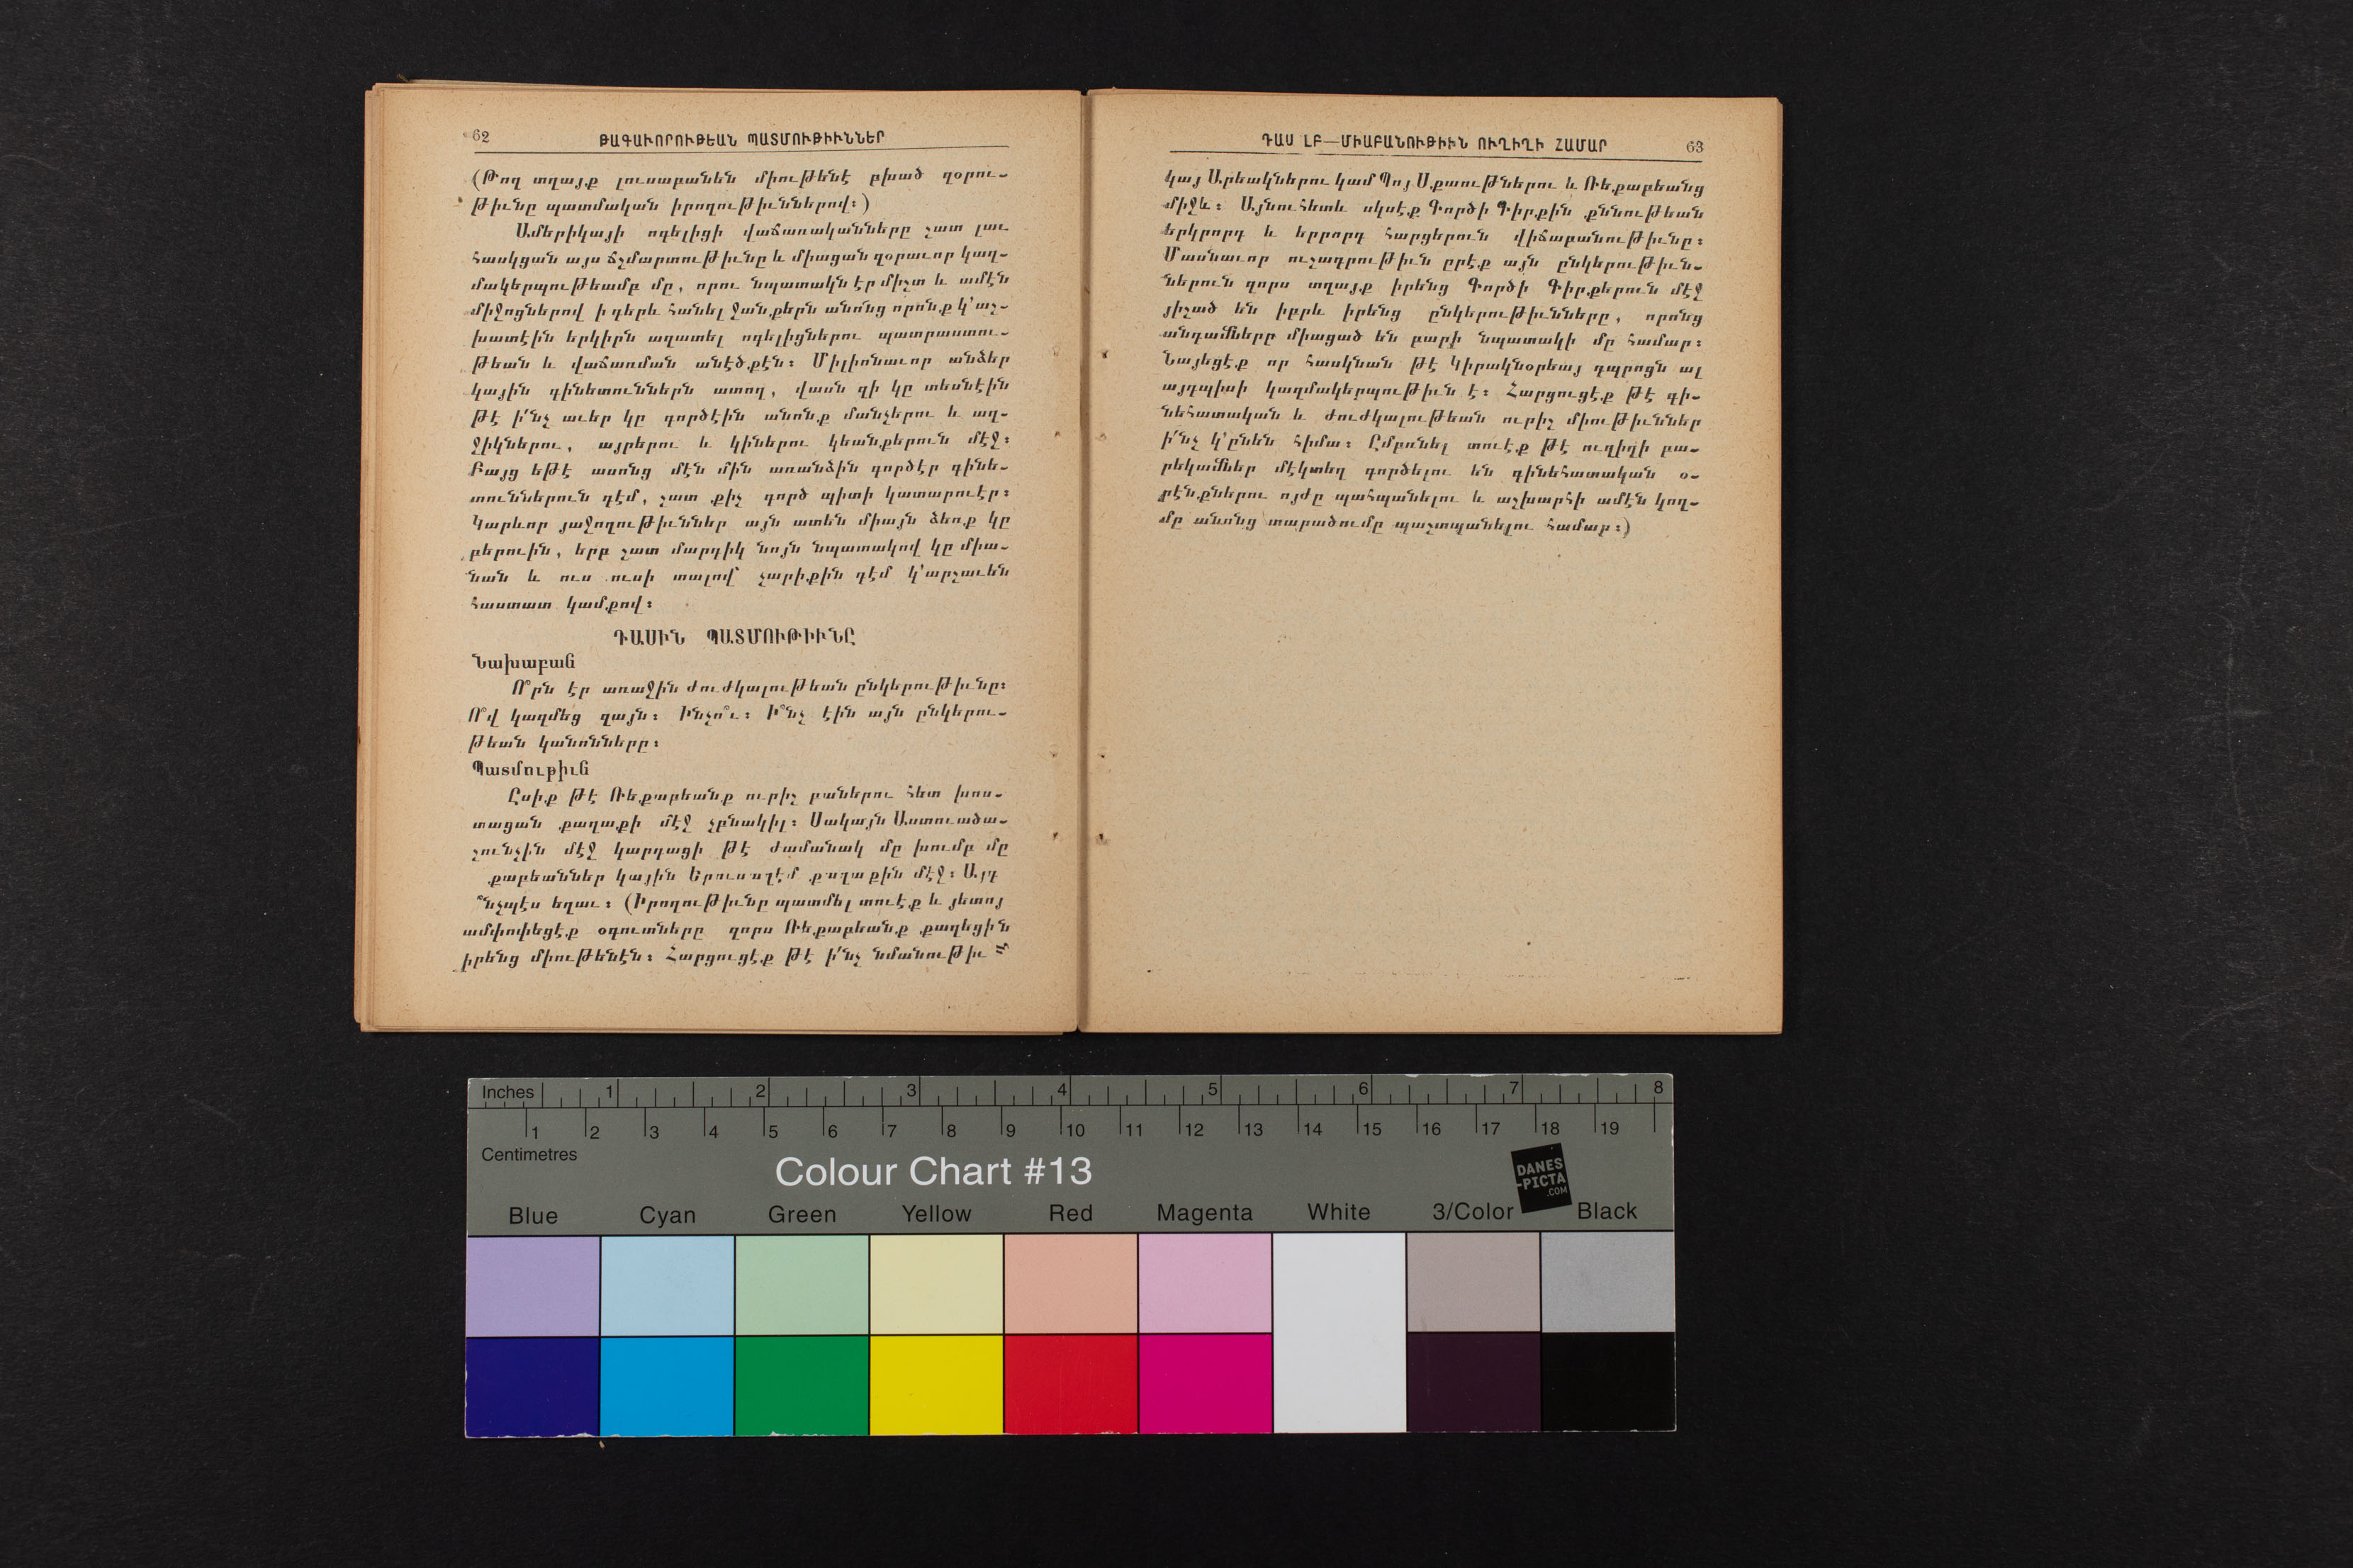 62 ԹԱԳԱՒՈՐՈՒԹԵԱՆ ՊԱՏՄՈՒԹԻՒՆՆԵՐ
(Թող տղայք լուսաբանեն միութենէ բխած զօրու-
թիւնը պատմական իրողութիւններով։)
Ամերիկայի ոգելիցի վաճառականները շատ լաւ
հասկցան այս ճշմարտութիւնը և միացան զօրաւոր կազ-
մակերպութեամբ մը, որու նպատակն էր միշտ և ամէն
միջոցներով ի դերև հանել ջանքերն անոնց որոնք կ՚աշ-
խատէին երկիրն ազատել ոգելիցներու պատրաստու-
թեան և վաճառման անէծքէն։ Միլիոնաւոր անձեր
կային գինետուններն ատող, վասն զի կը տեսնէին
թէ ի՛նչ աւեր կը գործէին անոնք մանչերու և աղ-
ջիկներու, այրերու և կիներու կեանքերուն մէջ։
Բայց եթէ ասոնց մէն մին առանձին գործէր գինե-
տուններուն դէմ, շատ քիչ գործ պիտի կատարուէր։
Կարևոր յաջողութիւններ այն ատեն միայն ձեռք կը
բերուին, երբ շատ մարդիկ նոյն նպատակով կը միա-
նան և ուս ուսի տալով՝ չարիքին դէմ կ՚արշաւեն
հաստատ կամքով։
ԴԱՍԻՆ ՊԱՏՄՈՒԹԻՒՆԸ
Նախաբան
Ո՞րն էր առաջին ժուժկալութեան ընկերութիւնը։
Ո՞վ կազմեց զայն։ Ինչո՞ւ։ Ի՞նչ էին այն ընկերու-
թեան կանոնները։
Պատմութիւն
Ըսիք թէ Ռեքաբեանք ուրիշ բաներու հետ խոս-
տացան քաղաքի մէջ չբնակիլ։ Սակայն Աստուածա-
շունչին մէջ կարդացի թէ ժամանակ մը խումբ մը
քաբեաններ կային Երուսաղէմ քաղաքին մէջ։ Այդ
՞նչպէս եղաւ։ (Իրողութիւնը պատմել տուէք և յետոյ
ամփոփեցէք օգուտները զորս Ռեքաբեանք քաղեցին
իրենց միութենէն։ Հարցուցէք թէ ի՛նչ նմանութիւն
ԴԱՍ ԼԲ—ՄԻԱԲԱՆՈՒԹԻՒՆ ՈՒՂԻՂԻ ՀԱՄԱՐ 63
կայ Արեակներու կամ Պոյ Սքաութներու և Ռեքաբեանց
միջև։ Այնուհետև սկսէք Գործի Գիրքին քննութեան
երկրորդ և երրորդ հարցերուն վիճաբանութիւնը։
Մասնաւոր ուշադրութիւն ըրէք այն ընկերութիւն-
ներուն զորս տղայք իրենց Գործի Գիրքերուն մէջ
յիշած են իբրև իրենց ընկերութիւնները, որոնց
անդամները միացած են բարի նպատակի մը համար։
Նայեցէք որ հասկնան թէ Կիրակնօրեայ դպրոցն ալ
այդպիսի կազմակերպութիւն է։ Հարցուցէք թէ գի-
նեհատական և ժուժկալութեան ուրիշ միութիւններ
ի՛նչ կ՚ընեն հիմա։ Ըմբռնել տուէք թէ ուղիղի բա-
րեկամներ մէկտեղ գործելու են գինեհատական օ-
րէնքներու ոյժը պահպանելու և աշխարհի ամէն կող-
մը անոնց տարածումը պաշտպանելու համար։)
Inches 1 2 3 4 5 6 7 8
1 2 3 4 5 6 7 8 9 10 11 12 13 14 15 16 17 18 19
Centimetres
Colour Chart #13
DANES
-PICTA
.COM
Blue Cyan Green Yellow Red Magenta White 3/Color Black